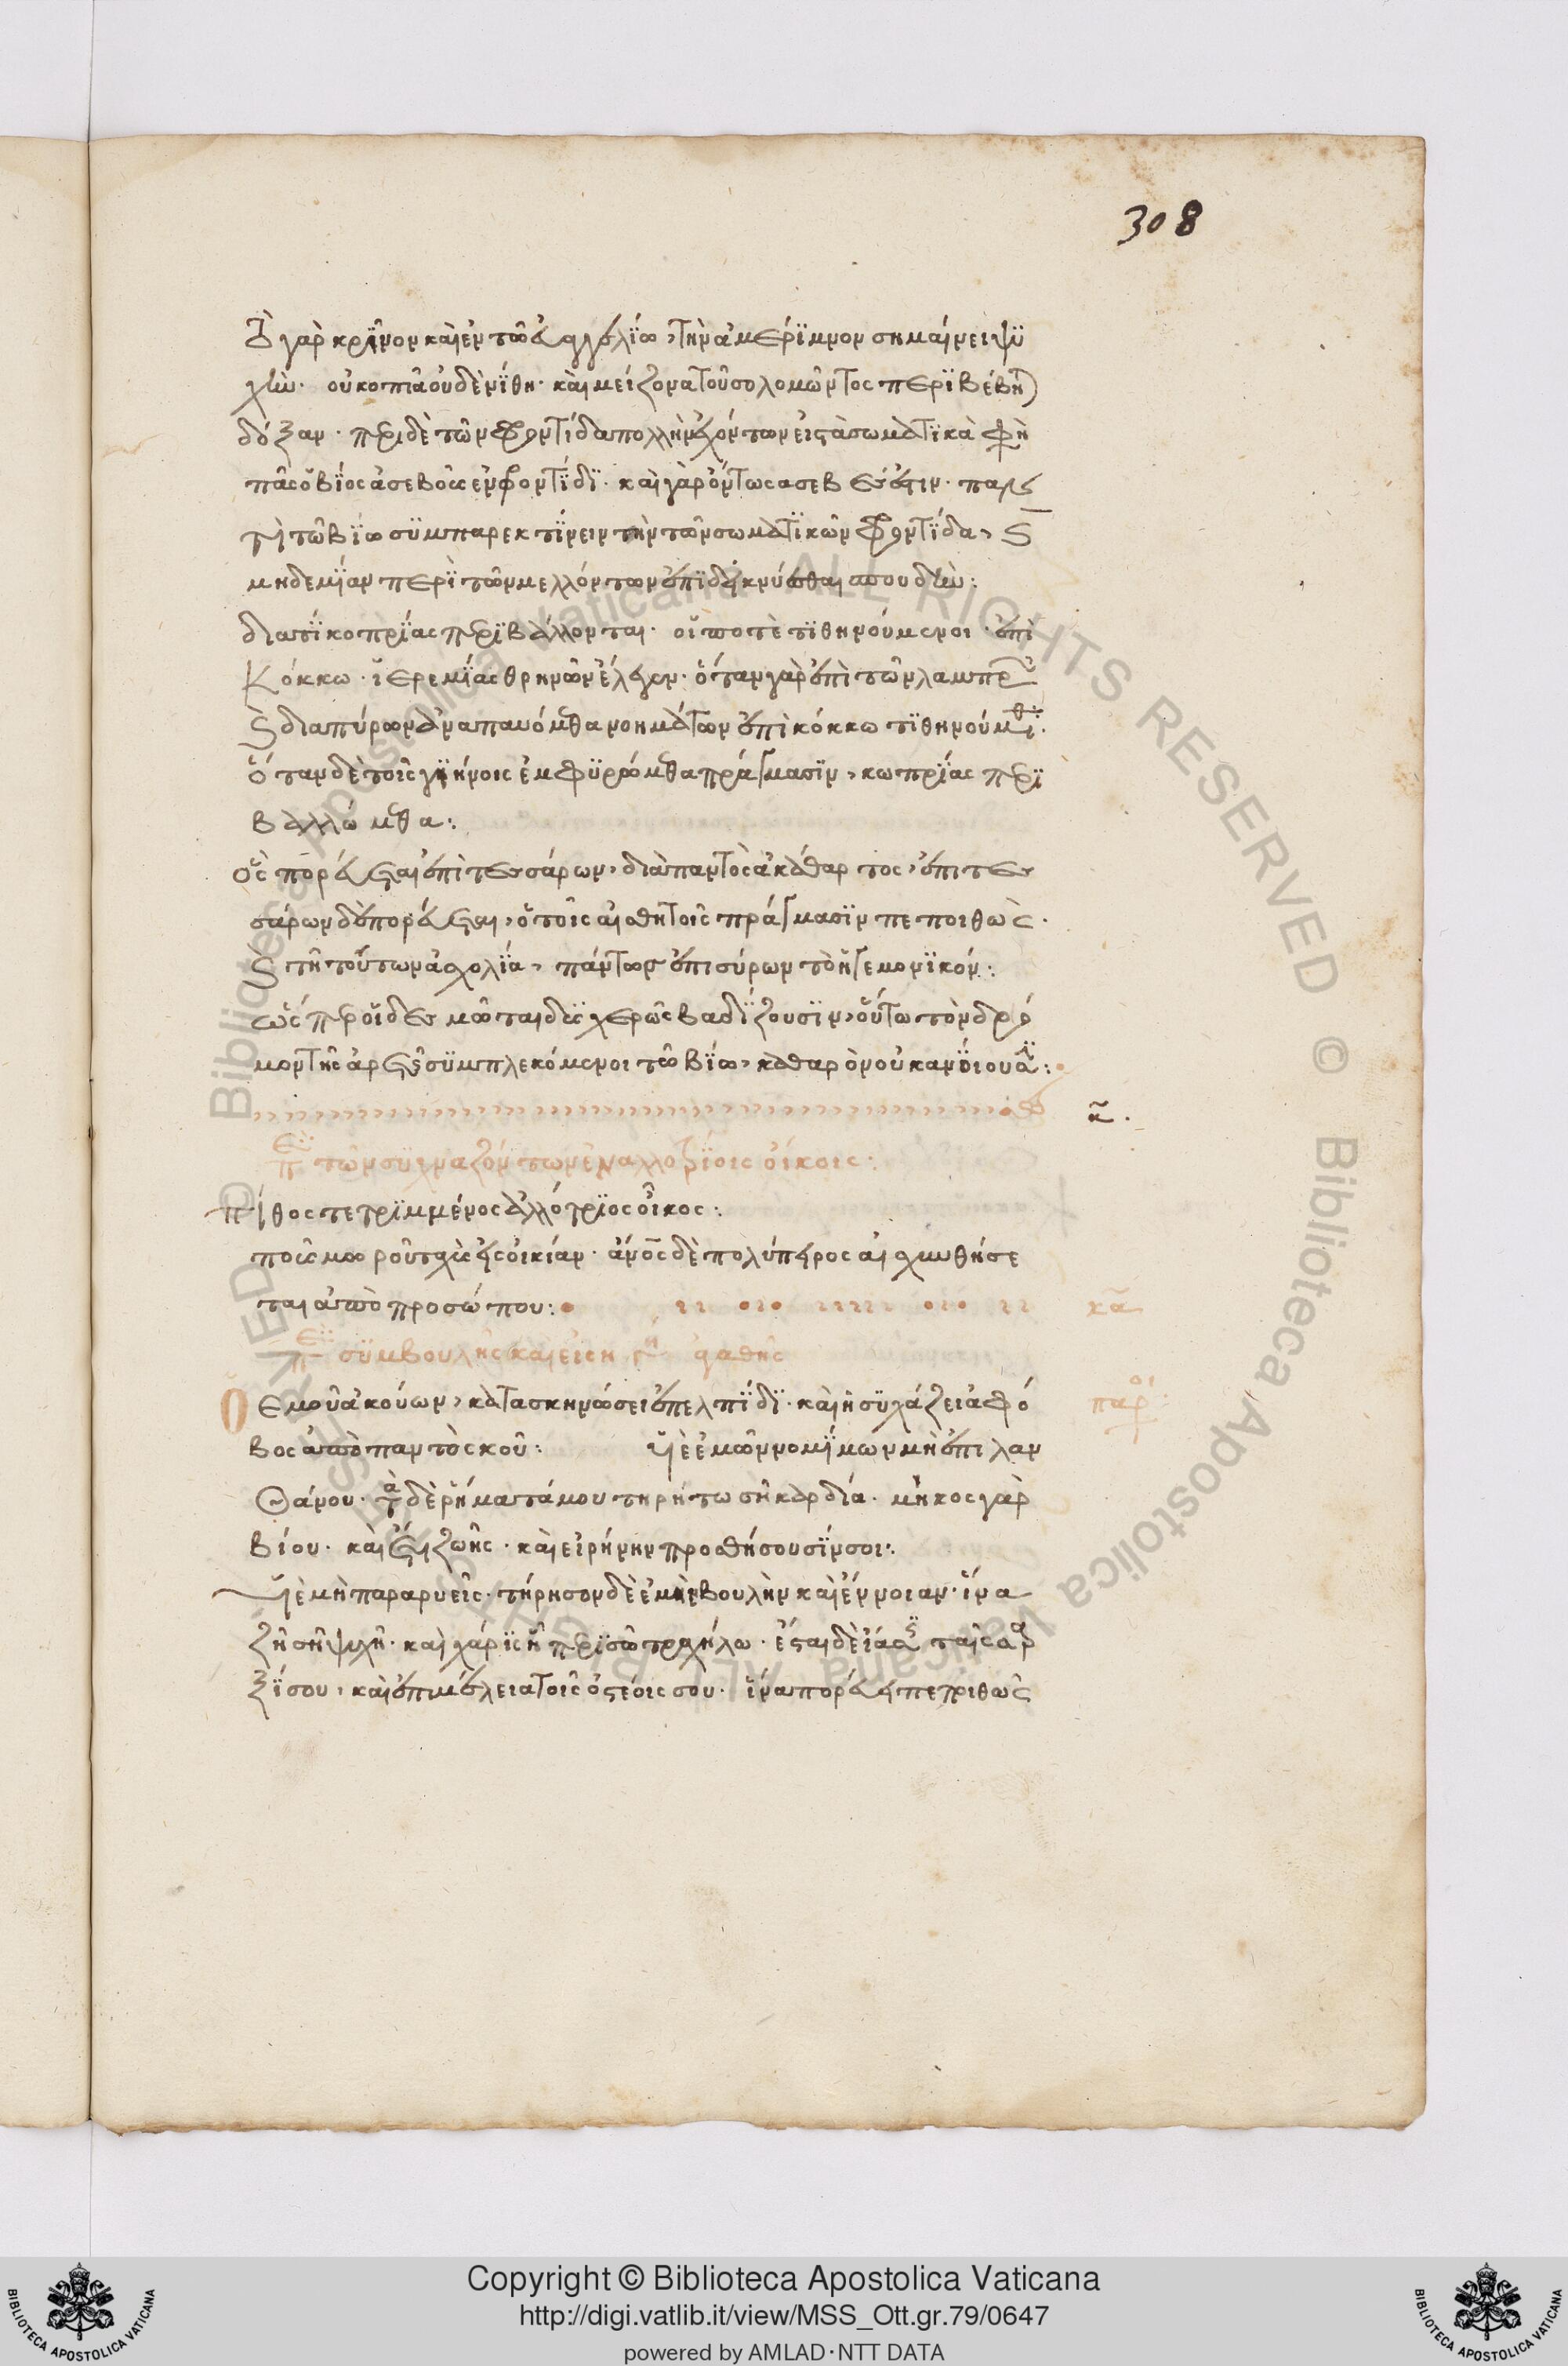 308
Τὸ γὰρ κρίνον καὶ ἐν τῶ εὐαγγελίω, τὴν ἀμέριμνον σημαίνει ψυ
χήν· οὐ κοπιᾶ οὐδὲ νήθη· καὶ μείζονα τοῦ σολομῶντος περιβέβλη
δόξαν· περὶ δὲ τῶν φροντίδα πολλὴν ἐχόντων εἰς τὰ σωματικὰ φη
πᾶς ὁ βίος ἀσεβοῦς ἐν φροντίδι· καὶ γὰρ ὄντως ἀσεβές ἐστιν·
τῶ βίω συμπαρεκτείνειν τὴν τῶν σωματικῶν φροντίδα, καὶ
μηδεμίαν περὶ τῶν μελλόντων ἐπιδείκνυσθαι σπουδήν:
διατί κοπρίας περιβάλλονται· οἵ ποτὲ τιθηνούμενοι· ἐπὶ
Κόκκω· ἱερεμίας θρηνῶν ἔλεγεν· ὅταν γὰρ ἐπὶ τῶν λαμπρῶν
καὶ διαπύρων ἀναπαυόμεθα νοημάτων ἐπὶ κόκκω τιθηνούμεθα·
ὅταν δὲ τοῖς γηίνοις ἐμφυρώμεθα πράγμασιν, κωπρίας περι
βαλλώμεθα:
ὃς πορεύεται ἐπὶ τεσσάρων, διὰ παντὸς ἀκάθαρτος, ἐπὶ τεσ
σάρων δὲ πορεύεται, ὁ τοῖς αἰσθητοῖς πράγμασιν πεποιθὼς·
καὶ τῆ τούτων ἀσχολία, πάντων ἐπισύρων τὸ ἡγεμονικόν:
ὡς περ οἱ δεσμῶται δυσχερῶς βαδίζουσιν, οὕτω τὸν δρό
μον τῆς ἀρετῆς συμπλεκόμενοι τῶ βίω, καθαρὸν οὐκ ἀνύουσι:
κ.
Περὶ τῶν συχναζόντων ἐν ἀλλοτρίοις οἴκοις:
πίθος τετριμμένος ἀλλότριος οἶκος:
ποὺς μωροῦ ταχὺς εἰς οἰκίαν· ἄνος δὲ πολύπειρος αἰσχυνθήσε
ται ἀπὸ προσώπου:
κα
Περὶ συμβουλῆς καὶ εἰσηγ ἀγαθῆς
Ὁ ἐμοῦ ἀκούων, κατασκηνώσει ἐπ ελπίδι· καὶ ἡσυχάζει ἀφό
παρ
βος ἀπὸ παντὸς κοῦ: Υἱὲ ἐμῶν νομίμων μὴ ἐπιλαν
θάνου· τὰ δὲ ῥήματά μου τηρήτω σῆ καρδία· μῆκος γὰρ
βίου· καὶ ἔτη ζωῆς· καὶ εἰρήνην προσθήσουσίν σοι:
Υἱὲ μὴ παραρυεὶς· τήρησον δὲ ἐμὴν βουλὴν καὶ ἔννοιαν· ἵνα
ζῆ σὴ ψυχὴ· καὶ χάρις ἦ περὶ σῶ τραχήλω· ἔσται δὲ ἴασις ταῖς σαρ
ξί σου, καὶ ἐπιμέλεια τοῖς ὀστέοις σου· ἵνα πορεύη πεποιθὼς
Copyright © Biblioteca Apostolica Vaticana
http://digi.vatlib.it/view/MSS_Ott.gr.79/0647
powered by AMLAD·NTT DATA